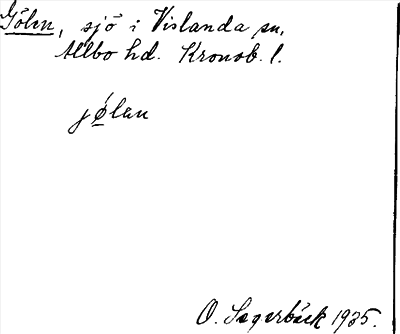 Gölen, sjö i Vislanda sn,
Allbo hd. Kronob. l.
jølen
O. Sagerbäck 1935.